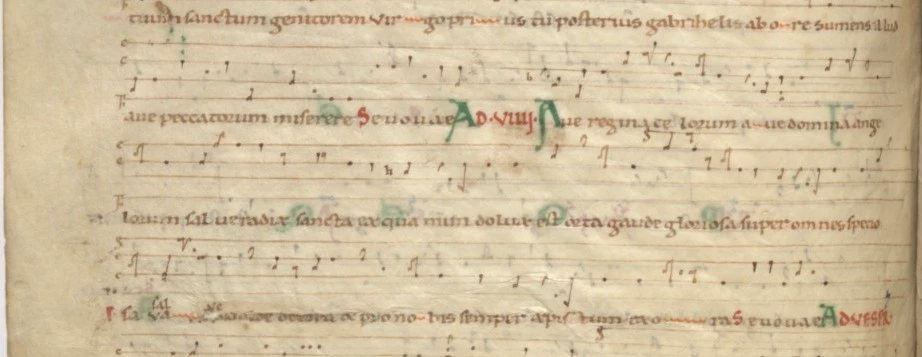 tuum sanctum genitorem virgo prius tu posterius gabrihelis ab ore sumens illud
ave peccatorum miserere Sevovae AD VIIII Ave regina celorum ave domina ange
lorum salve radix sancta ex qua mundo lux est orta gaude gloriosa super omnes specio
sa val de decora et pro nobis semper xpistum exora Sevovae AD VESPR